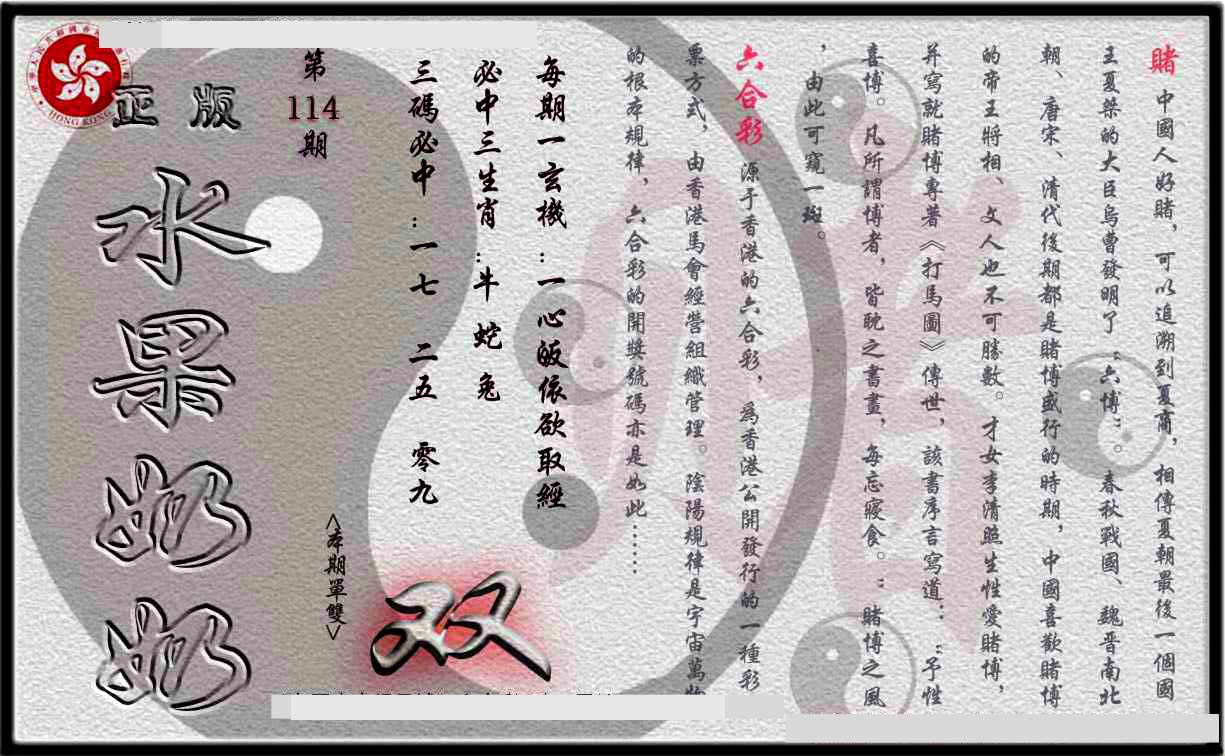 賭 中國人好賭，可以追溯到夏商，相傳夏朝最後一個國
王夏桀的大臣烏曹發明了“六博”。春秋戰國、魏晉南北
朝、唐宋、清代後期都是賭博盛行的時期，中國喜歡賭博
的帝王將相、文人也不可勝數。才女李清照生性愛賭博，
并寫就賭博專著《打馬圖》傳世，該書序言寫道：“予性
喜博。凡所謂博者，皆耽之書畫，每忘寢食。”賭博之風
，由此可窺一斑。
六合彩 源于香港的六合彩，為香港公開發行的一種彩
票方式，由香港馬會經營組織管理。陰陽規律是宇宙萬物
的根本規律，六合彩的開獎號碼亦是如此……
每期一玄機：一心皈依欲取經
必中三生肖：牛 蛇 兔
三碼必中：一七 二五 零九
第114期
<本期單雙>
双
正版
水果奶奶
HONG KONG